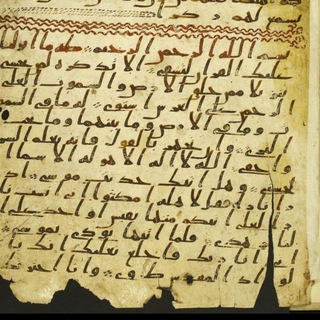 تسمع لهم ركزا
بسم الله الرحمن الرحيم طه ما انزلنا
عليك القران لتشقى الا تذكرة لمن يخشى
تنزيلا ممن خلق الارض والسموت العلى
الرحمن على العرش استوى له ما في السمو
ت وما في الارض وما بينهما وما تحت
الثرى وان تجهر بالقول فانه يعلم السر
واخفى الله لا اله الا هو له الاسما ا
لحسنى وهل اتيك حديث موسى اذ
را نارا فقال لاهله امكثوا اني انست نا
را لعلي اتيكم منها بقبس او اجد على ا
لنار هدى فلما اتيها نودي يموسى
اني انا ربك فاخلع نعليك انك با
لواد المقدس طوى وانا اخترتك